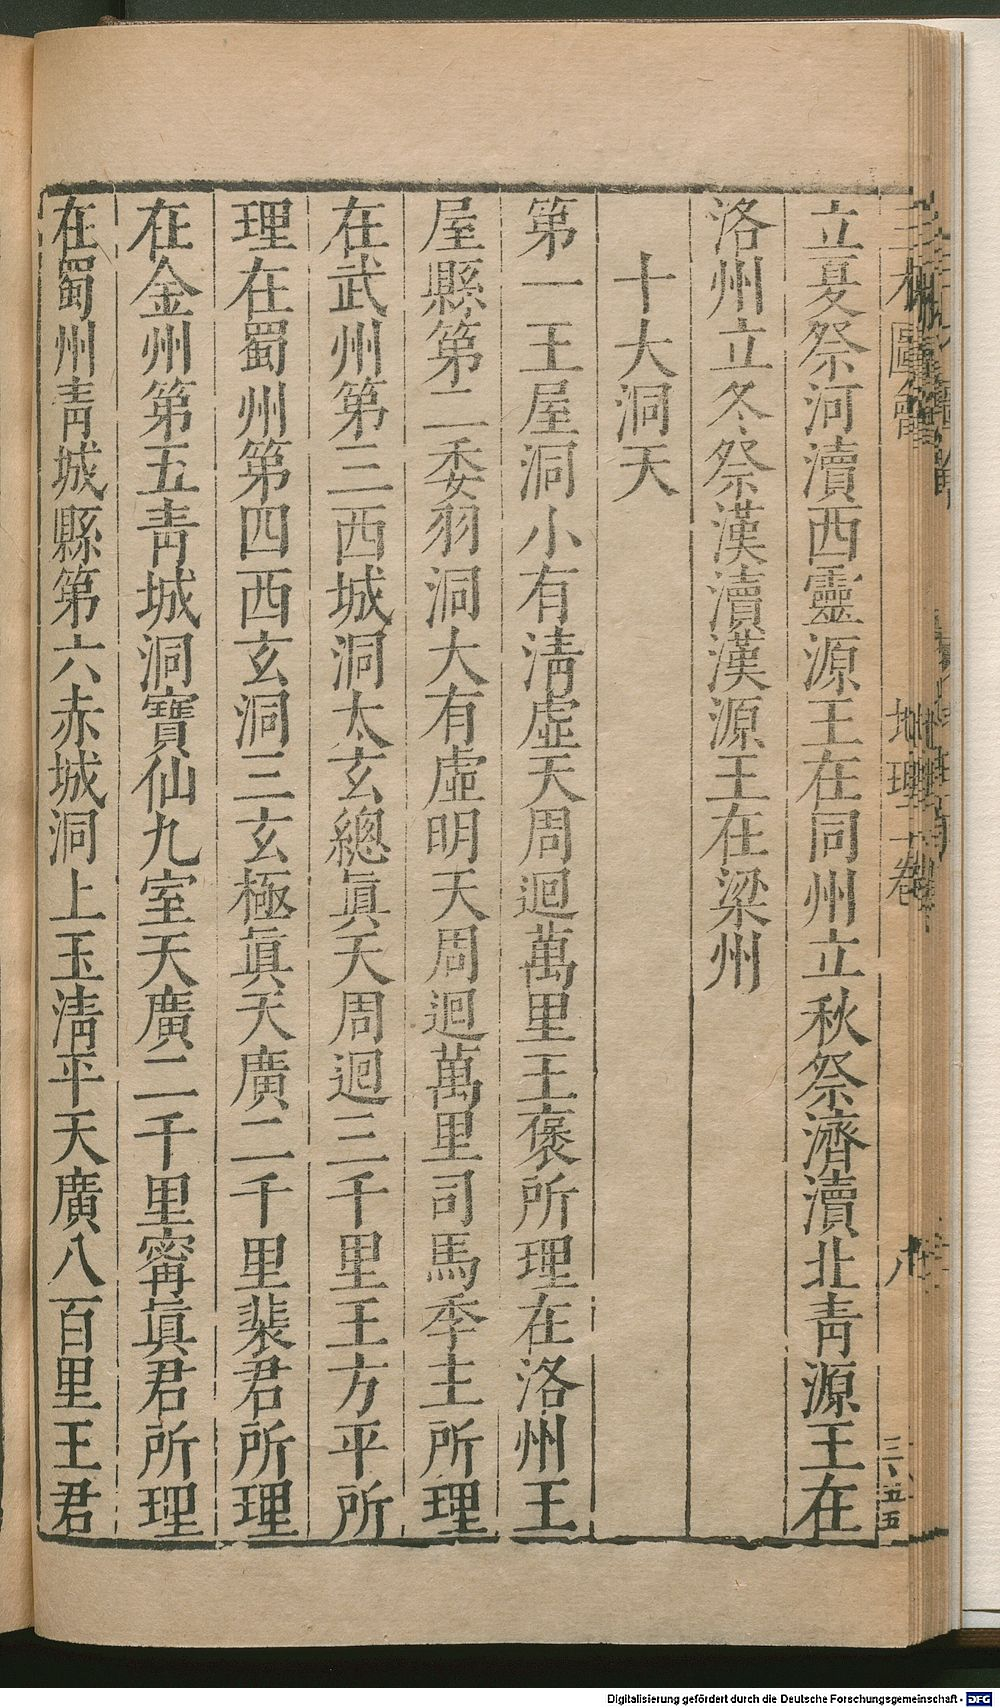 立夏祭河瀆西靈源王在同州立秋祭濟瀆北青源王在
洛州立冬祭漢瀆漢源王在梁州
十大洞天
第一王屋洞小有淸虛天周迴萬里王褒所理在洛州王
屋縣第二委羽洞大有虛明天周迴萬里司馬季主所理
在武州第三西城洞太玄總眞天周迴三千里王方平所
理在蜀州第四西玄洞三玄極眞天廣二千里裴君所理
在金州第五靑城洞寶仙九室天廣二千里甯眞君所理
在蜀州靑城縣第六赤城洞上玉淸平天廣八百里王君
地理
卷
八
三、五五
Digitalisierung gefördert durch die Deutsche Forschungsgemeinschaft - DFG